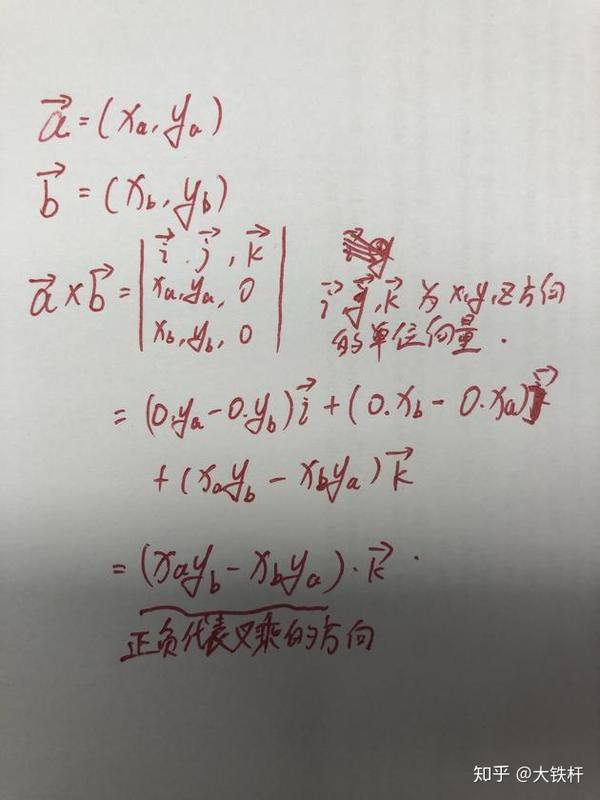 a⃗ = (xa, ya)
b⃗ = (xb, yb)
a⃗ × b⃗ = | i⃗, j⃗, k⃗ |
| xa, ya, 0 |
| xb, yb, 0 |
i⃗, j⃗, k⃗ 为 x,y,z方向
的单位向量.
= (0·ya - 0·yb) i⃗ + (0·xb - 0·xa) j⃗
+ (xayb - xbya) k⃗
= (xayb - xbya)·k⃗.
正负代表叉乘的方向
知乎 @大铁杆